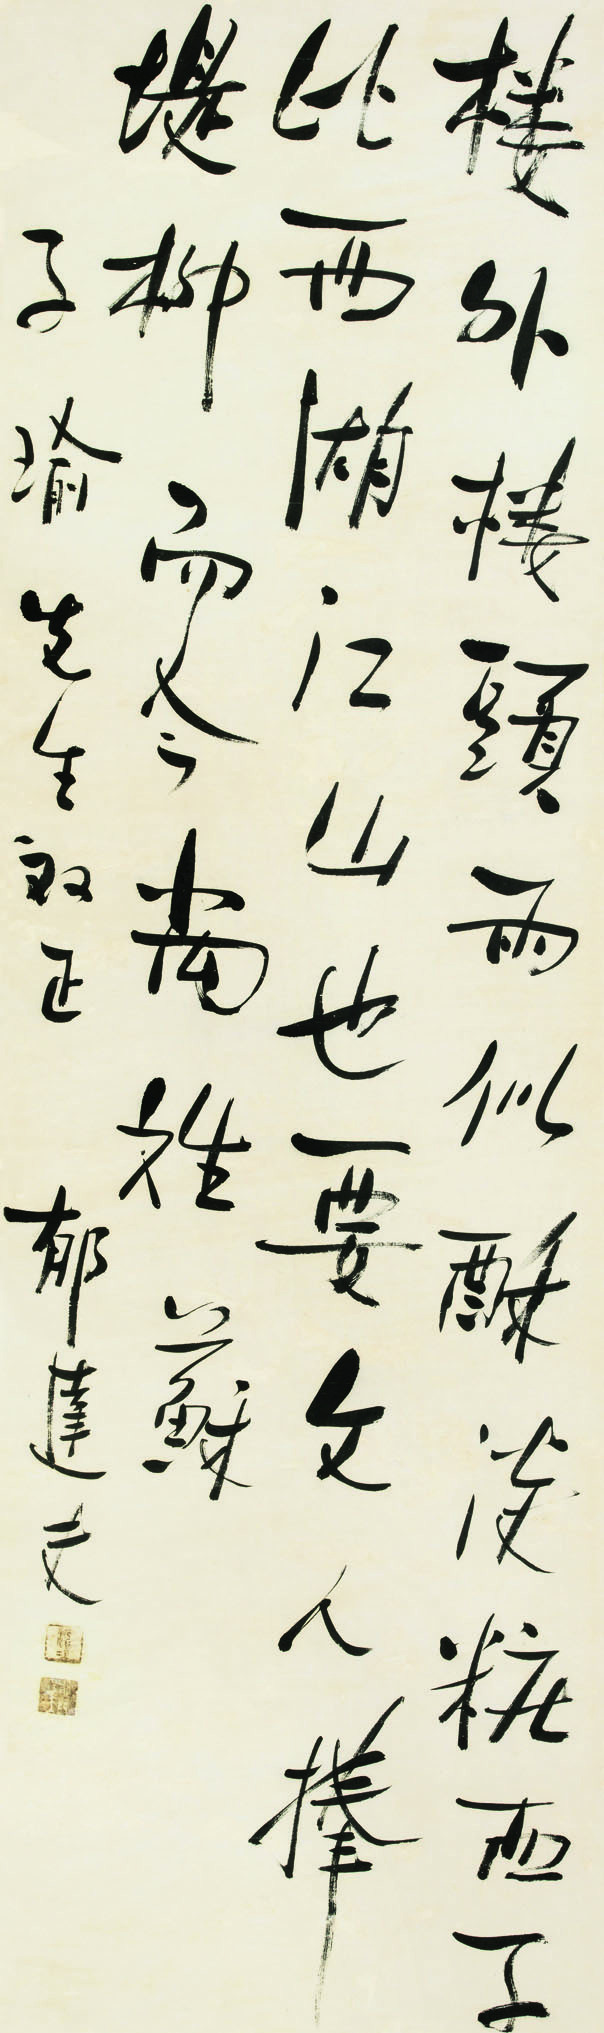 楼外楼頭雨似酥淡粧西子
比西湖江山也要文人捧
堤柳而今尚姓蘇
子瑜先生敎正
郁達夫